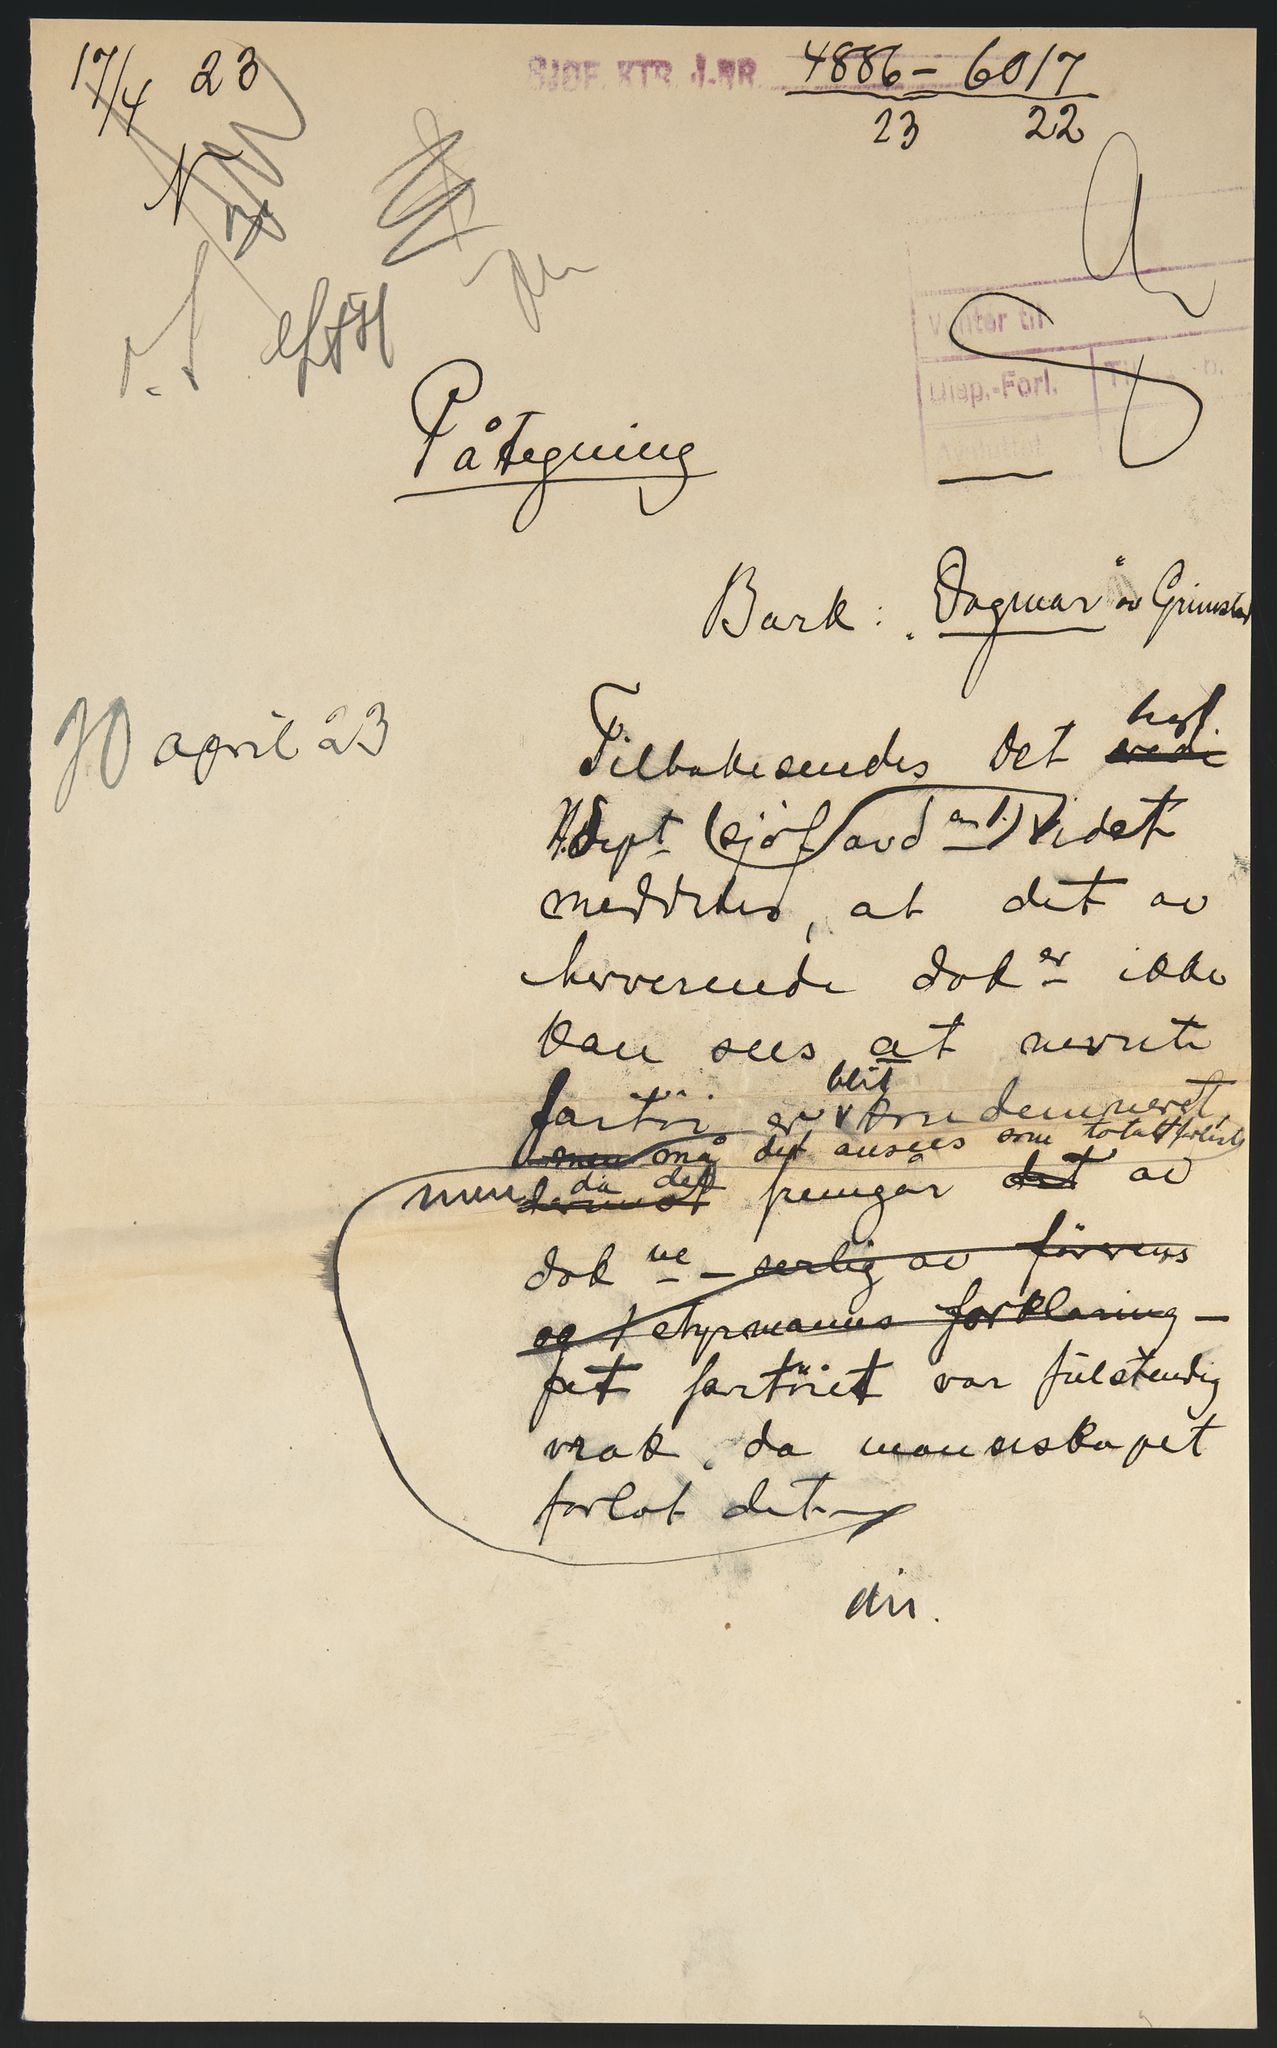 17/4 23
SJØF. KTR. J.NR. 4886 - 6017
23 22
N
Venter til
Disp.-Forl.
Avsluttet
Påtegning
Bark: "Dagmar" av Grimstad
30 april 23
Tilbakesendes det
H.dept (sjöf avd) idet
meddeles, at det av
herverende dok er ikke
kan sees at nevnte
fartöi er blit kondemneret,
men må det ansees som totalt forlist
men da det fremgår det av
dok ne - serlig av förerens
og styrmanns forklaring -
at fartöiet var fulstendig
vrak, da mannskapet
forlot det
dir.